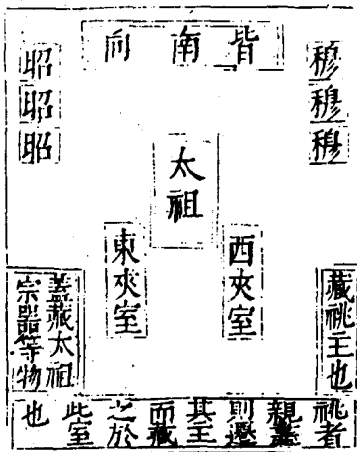 皆南向
穆
穆
穆
昭
昭
昭
太祖
西夾室
東夾室
藏祧主也
蓋藏太祖
宗器等物
祧者
親盡
則遷
其主
而藏
之於
此室
也